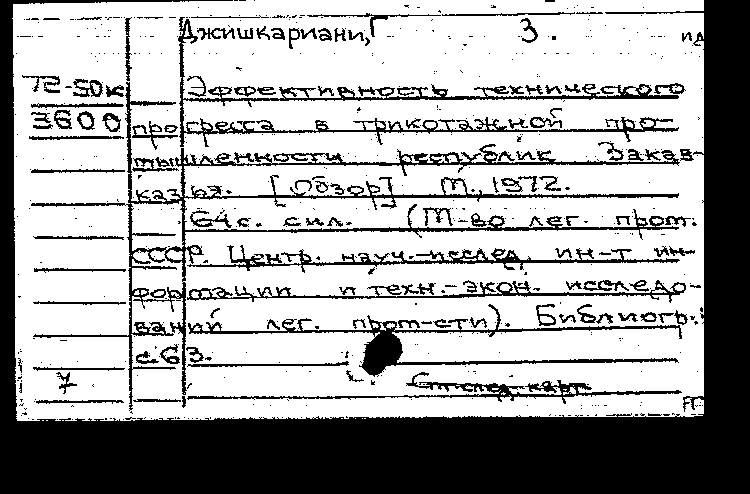 Джишкариани, Г З.
72-50к
3600
Эффективность технического
прогресса в трикотажной про-
мышленности республик Закав-
казья. [Обзор] М., 1972.
64с. с ил. (М-во лег. пром.
СССР. Центр. науч.-исслед. ин-т ин-
формации и техн.-экон. исследо-
ваний лег. пром-сти). Библиогр.:
с 63.
7
См след. карт